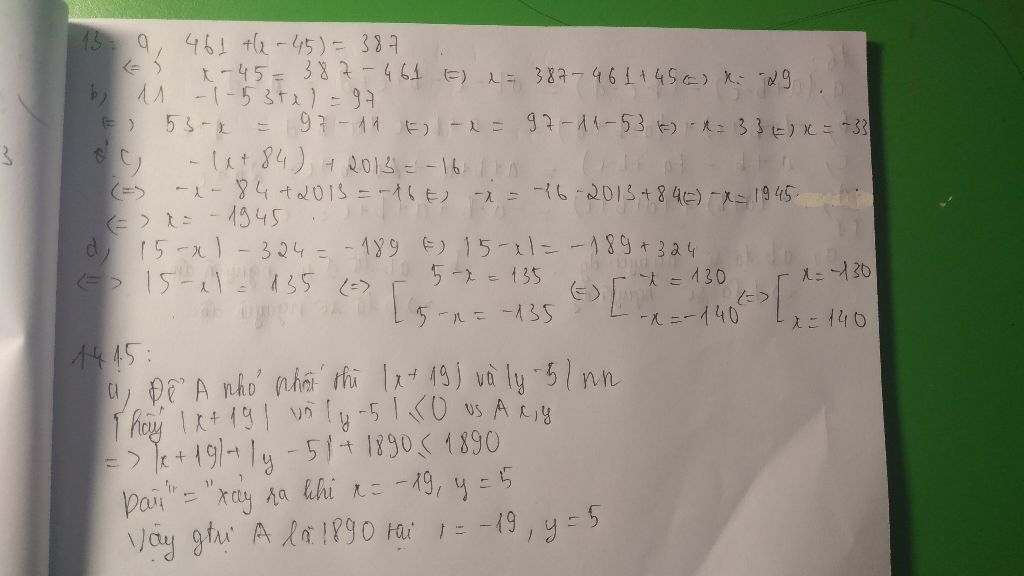 13: a, 461 +(x - 45) = 387
<=> x - 45 = 387 - 461 <=> x = 387 - 461 + 45 <=> x = -29
b, 11 - (-53 + x) = 97
<=> 53 - x = 97 - 11 <=> -x = 97 - 11 - 53 <=> -x = 33 <=> x = -33
c, -(x + 84) + 2013 = -16
<=> -x - 84 + 2013 = -16 <=> -x = -16 - 2013 + 84 <=> -x = 1945
<=> x = -1945
d, |5 - x| - 324 = -189 <=> |5 - x| = -189 + 324
<=> |5 - x| = 135 <=> [ 5 - x = 135 <=> [ -x = 130 <=> [ x = -130
5 - x = -135 -x = -140 x = 140
14.15:
a, Để A nhỏ nhất thì |x + 19| và |y - 5| nn
Thấy |x + 19| và |y - 5| ≤ 0 vs A x, y
=> |x + 19| + |y - 5| + 1890 ≤ 1890
Dấu "=" xảy ra khi x = -19, y = 5
Vậy gtrị A là 1890 tại = -19, y = 5